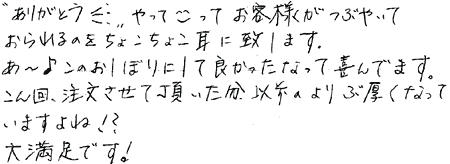 "ありがとう!!"、やってこってお客様がつぶやいて
おられるのをちょこちょこ耳に致します。
あ~♪このおしぼりにして良かったなって喜んでます。
こん回、注文させて頂いた分以前のよりぶ厚くなって
いますよね!?
大満足です!